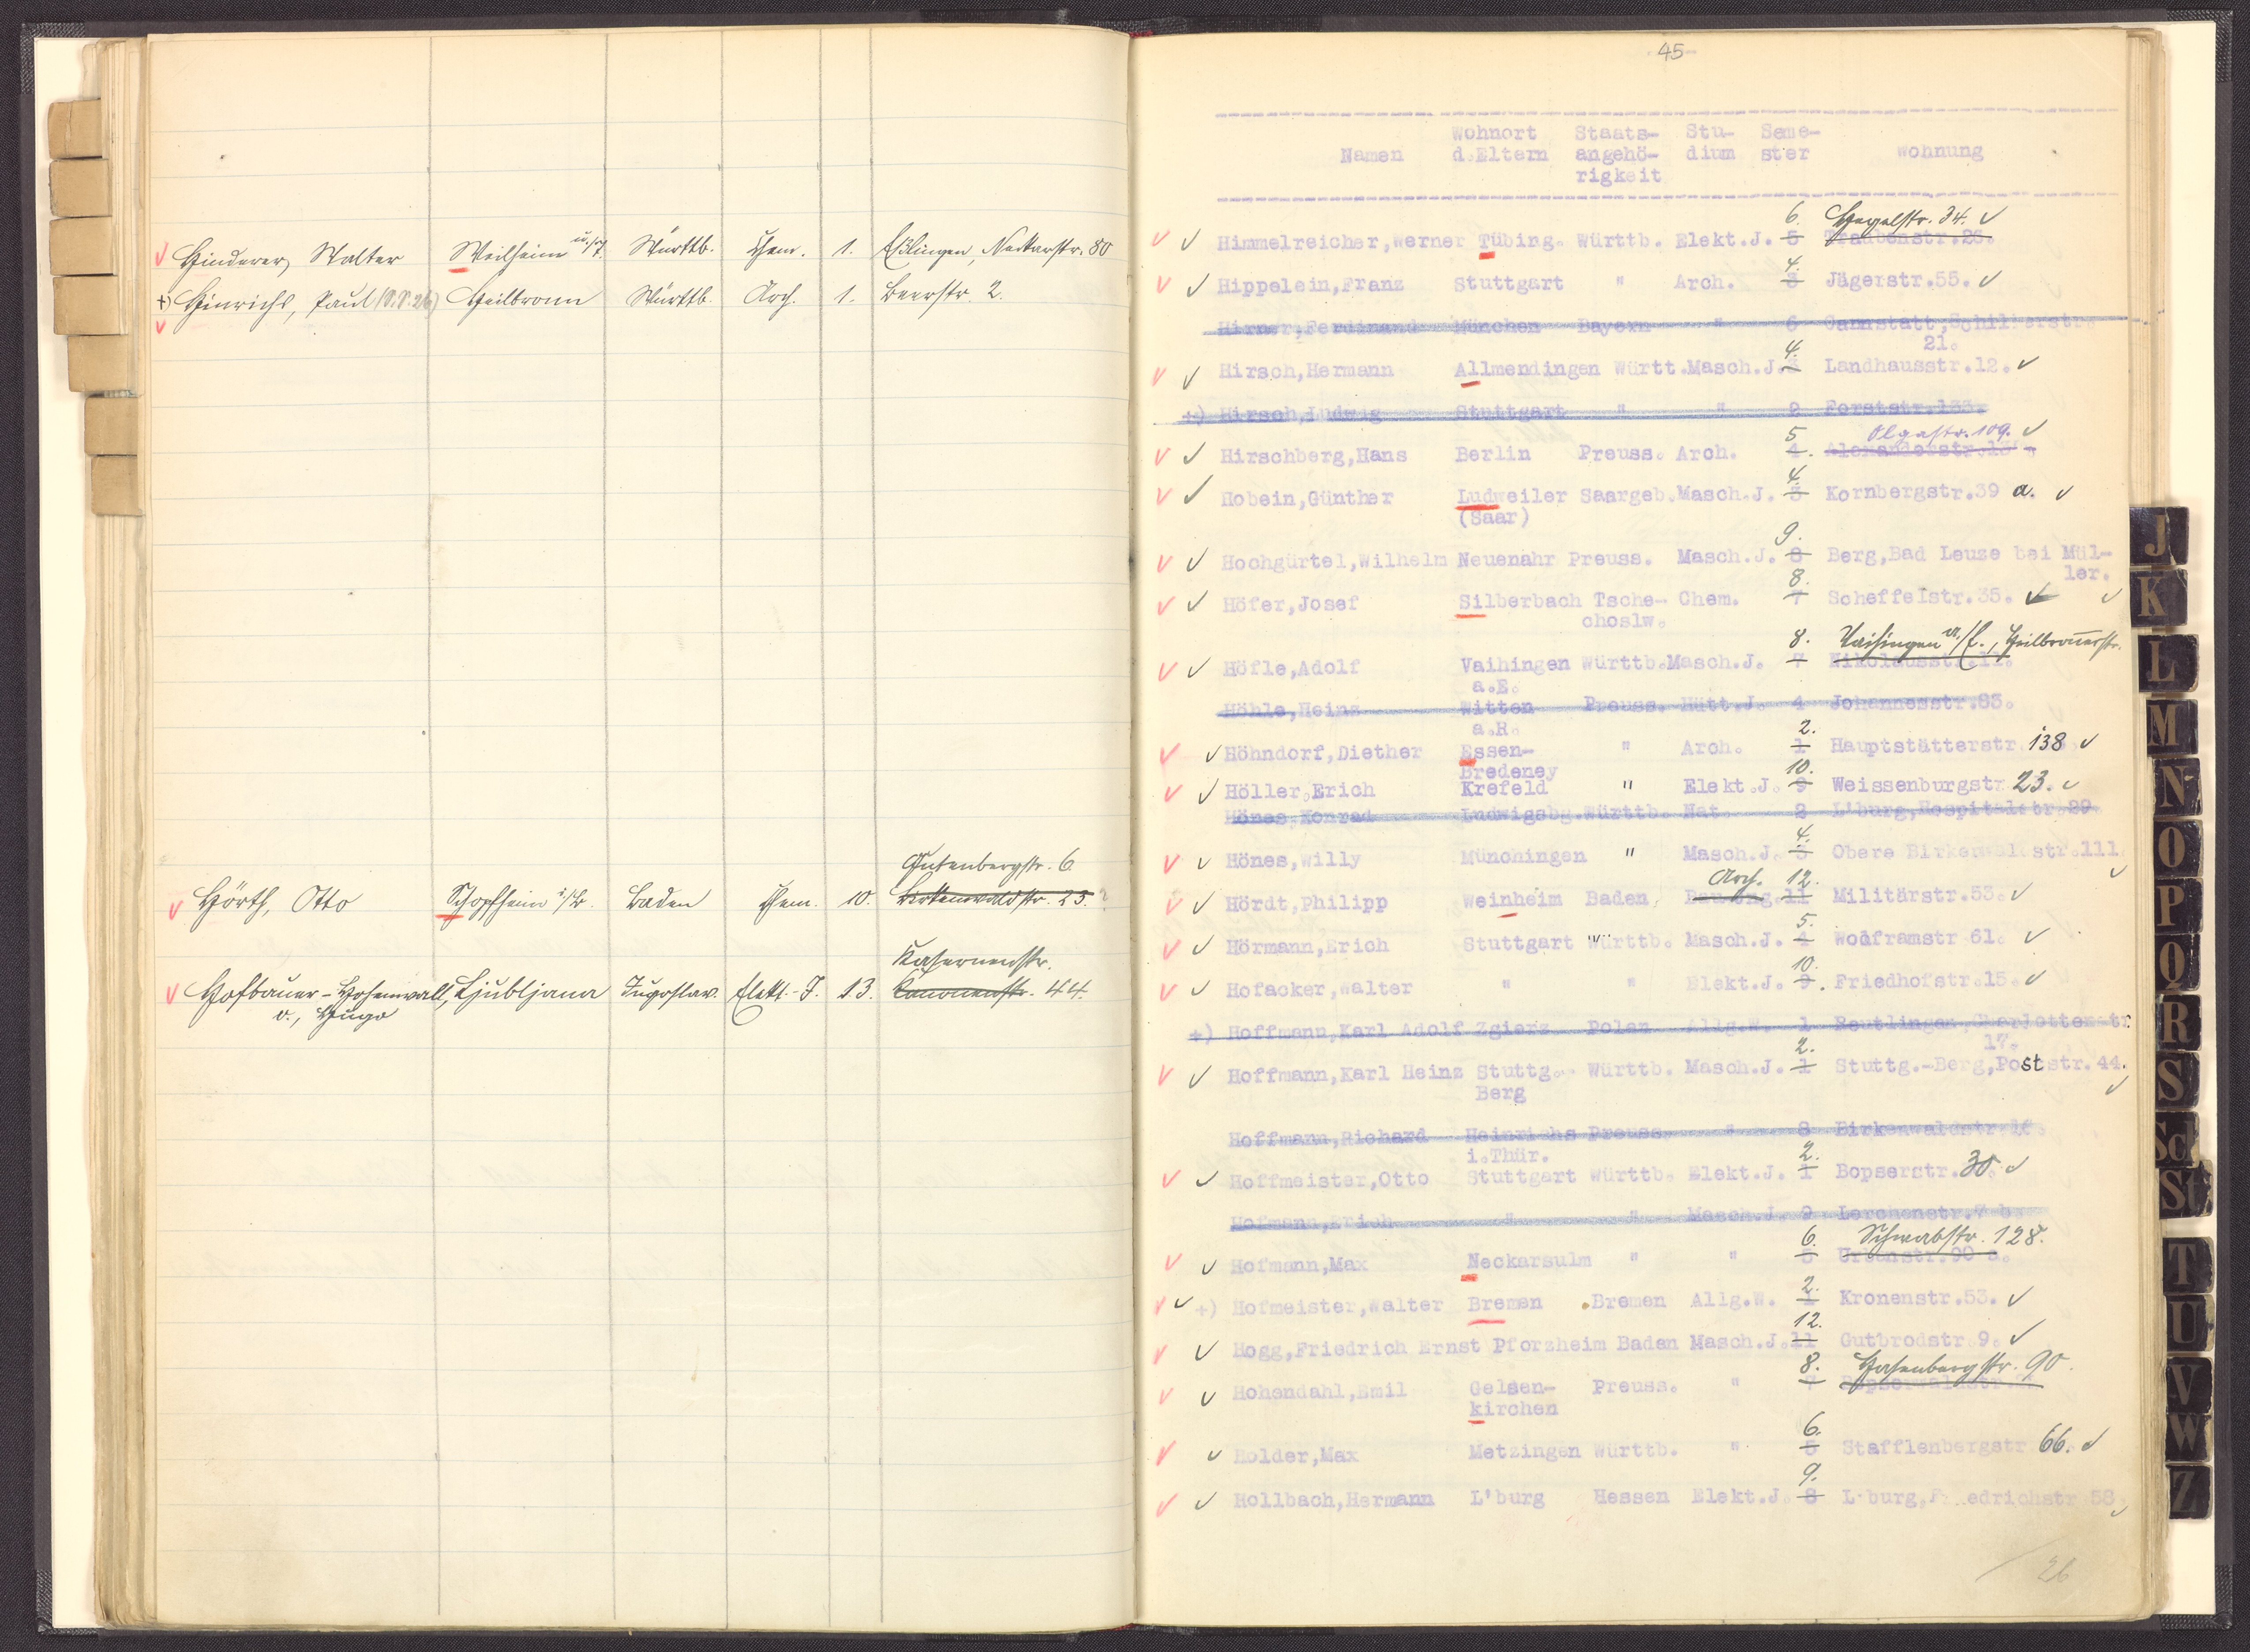 Hinderer, Walter Weilheim u/T. Württb. Chem. 1. Eßlingen, Neckarstr. 80
+) Hinrichs, Paul (S.S. 26) Heilbronn Württb. Arch. 1. Beerstr. 2.
Gutenbergstr. 6.
Hörth, Otto Schopfheim i/B. Baden Chem. 10. Birkenwaldstr. 23. ?
Kasernenstr.
Hofbauer-Hohenwall, Ljubljana Jugoslav. Elekt.-J. 13. Kanonenstr. 44.
v., Hugo
-45-
Wohnort Staats- Stu- Seme-
Namen d.Eltern angehö- dium ster Wohnung
rigkeit
6. Hegelstr. 34.
Himmelreicher,Werner Tübing. Württb. Elekt.J. 5 Traubenstr.26.
4.
Hippelein,Franz Stuttgart " Arch. 3 Jägerstr.55.
Hirner,Ferdinand München Bayern " 6 Cannstatt,Schillerstr.
21.
4.
Hirsch,Hermann Allmendingen Württ.Masch.J.3 Landhausstr.12.
+) Hirsch,Ludwig Stuttgart " " 2 Forststr.133.
5 Olgastr. 109.
Hirschberg,Hans Berlin Preuss. Arch. 4.
4.
Hobein,Günther Ludweiler Saargeb.Masch.J. 3 Kornbergstr.39 a.
(Saar)
9.
Hochgürtel,Wilhelm Neuenahr Preuss. Masch.J. 8 Berg,Bad Leuze bei Mül-
ler.
8.
Höfer,Josef Silberbach Tsche- Chem. 7 Scheffelstr.35.
choslw.
8. Vaihingen a./E., Heilbronnerstr.
Höfle,Adolf Vaihingen Württb.Masch.J. 7 Nikolausstr.11.
a.E.
Höhle,Heinz Witten Preuss. Hütt.J. 4 Johannesstr.83.
a.R.
2.
Höhndorf,Diether Essen- " Arch. 1 Hauptstätterstr. 138
Bredeney
10.
Höller,Erich Krefeld " Elekt.J. 9 Weissenburgstr. 23.
Hönes,Konrad Ludwigsbg.Württb. Nat. 2 L'burg,Hospitalstr.29.
4.
Hönes,Willy Münchingen " Masch.J. 3 Obere Birkenwaldstr.111.
Arch. 12.
Hördt,Philipp Weinheim Baden Bau.Ing.11 Militärstr.53.
5.
Hörmann,Erich Stuttgart Württb. Masch.J. 4 Wolframstr.61.
10.
Hofacker,Walter " " Elekt.J. 9. Friedhofstr.15.
+) Hoffmann,Karl Adolf Zgierz Polen Allg.W. 1 Reutlingen,Charlottenstr.
17.
2.
Hoffmann,Karl Heinz Stuttg.- Württb. Masch.J. 1 Stuttg.-Berg,Poststr.44.
Berg
Hoffmann,Richard Heinrichs Preuss. " 8 Birkenwaldstr.
i.Thür.
2.
Hoffmeister,Otto Stuttgart Württb. Elekt.J. 1 Bopserstr. 30.
Hofmann,Erich " " Masch.J. 9 Lerchenstr.7 b.
6. Schwabstr. 128.
Hofmann,Max Neckarsulm " " 5 Urbanstr.90
2.
+) Hofmeister,Walter Bremen Bremen Allg.W. 1 Kronenstr.53.
12.
Hogg,Friedrich Ernst Pforzheim Baden Masch.J.11 Gutbrodstr.9.
8. Hasenbergstr. 90.
Hohendahl,Emil Gelsen- Preuss. " 7
kirchen
6.
Holder,Max Metzingen Württb. " 5 Stafflenbergstr. 66.
9.
Hollbach,Hermann L'burg Hessen Elekt.J. 8 L'burg,Friedrichstr.58.
26
J
K
L
M
N
O
P
Q
R
S
Sch
St
T
U
V
W
Z